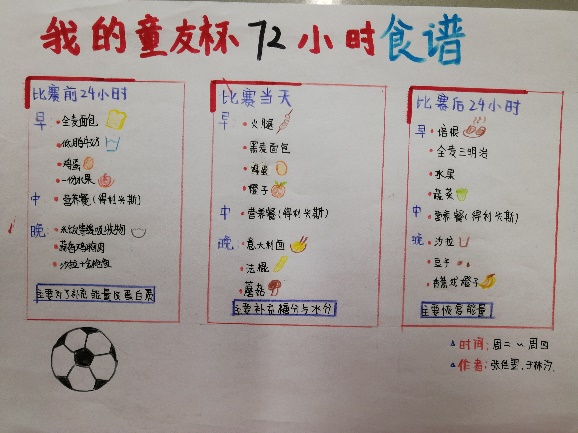 我的童友杯72小时食谱
比赛前24小时
早:
全麦面包
低脂牛奶
鸡蛋
一份水果
中
营养餐(得利米斯)
晚:
蒜香鸡胸肉
沙拉+全麦包
主要为了补充能量及蛋白质
比赛当天
早:
火腿
黑麦面包
鸡蛋
橙子
中
营养餐(得利米斯)
晚:
意大利面
法棍
蘑菇
主要补充糖分与水分
比赛后24小时
早:
培根
全麦三明治
水果
蔬菜
中:
营养餐(得利米斯)
晚:
沙拉
豆子
香蕉或橙子
主要恢复能量
时间: 周二~周四
作者: